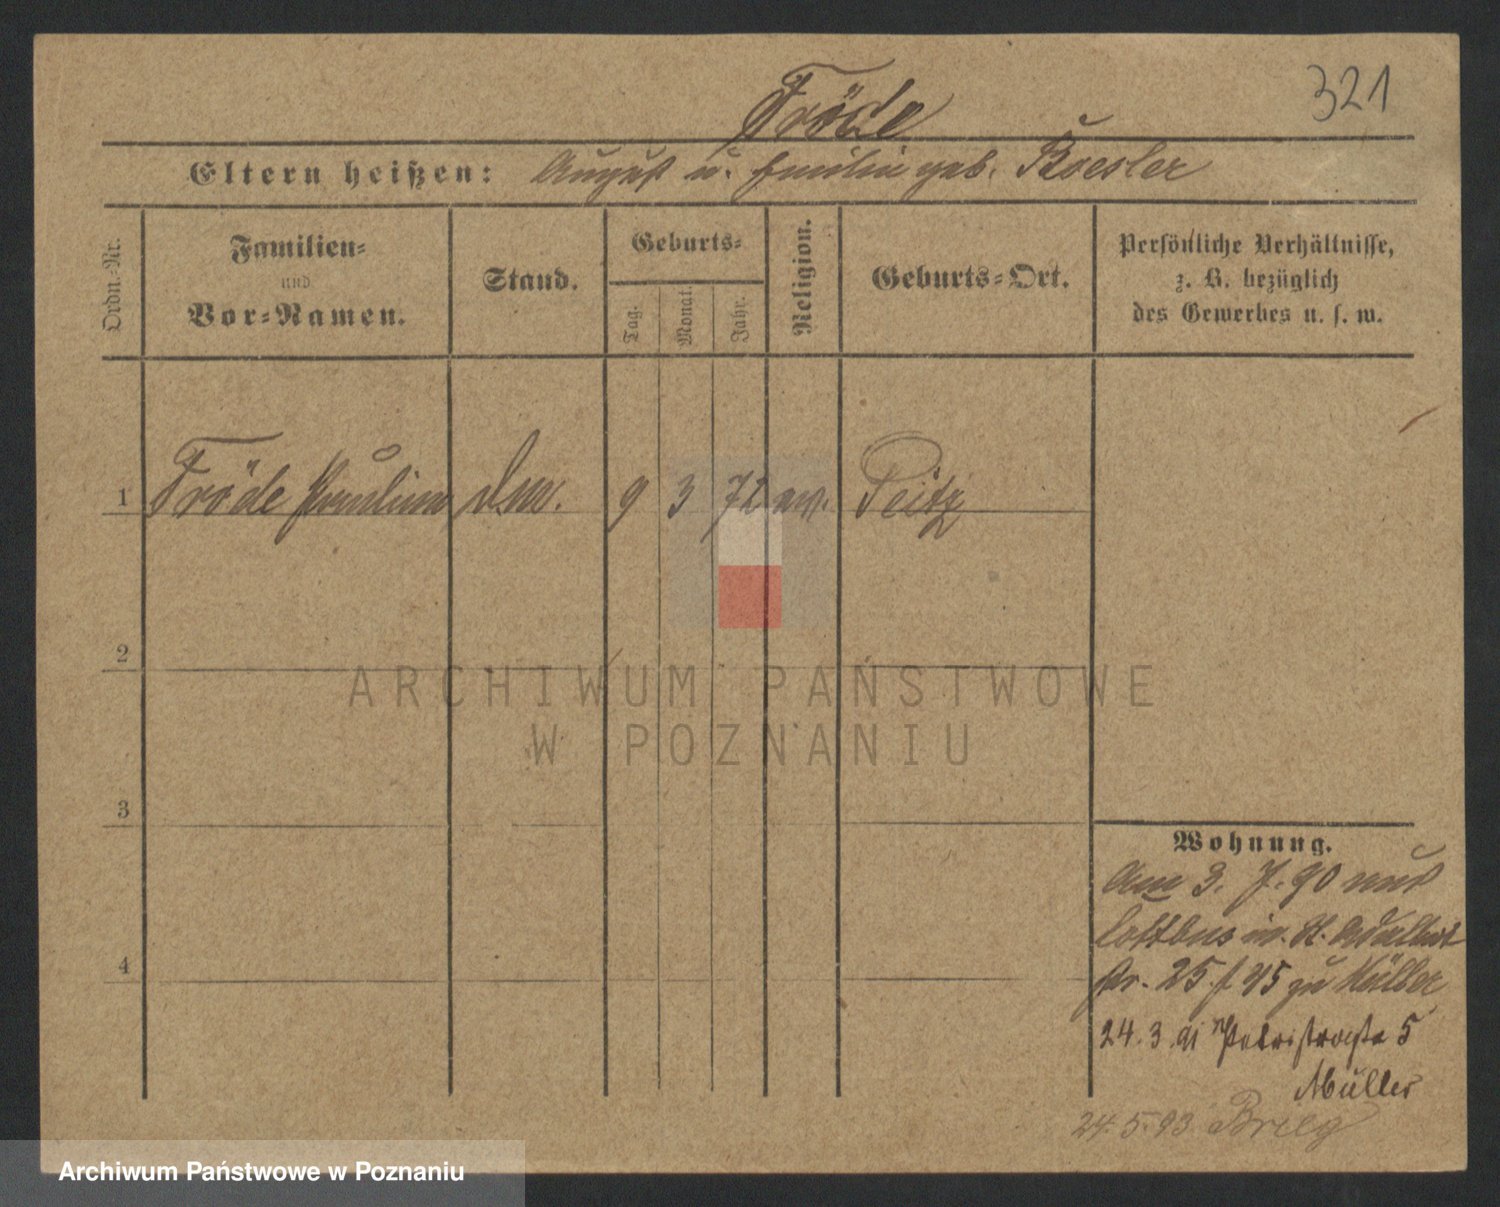 321
Fröde
Eltern heißen: August u. Emilie geb. Roesler
Ordn.-Nr.
Familien-
und
Vor-Namen.
Stand.
Geburts-
Tag.
Monat.
Jahr.
Religion.
Geburts-Ort.
Persönliche Verhältnisse,
z. B. bezüglich
des Gewerbes u. s. w.
1 Fröde Pauline 9 3 72 ev. Peitz
2
3
4
ARCHIWUM PAŃSTWOWE
W POZNANIU
Wohnung.
Am 3. 7. 90 aus
Cottbus n. St. Adalbert
str. 25 zu Müller
24. 3. 91 Petristraße 5
Müller
24. 5. 93 Brieg
Archiwum Państwowe w Poznaniu